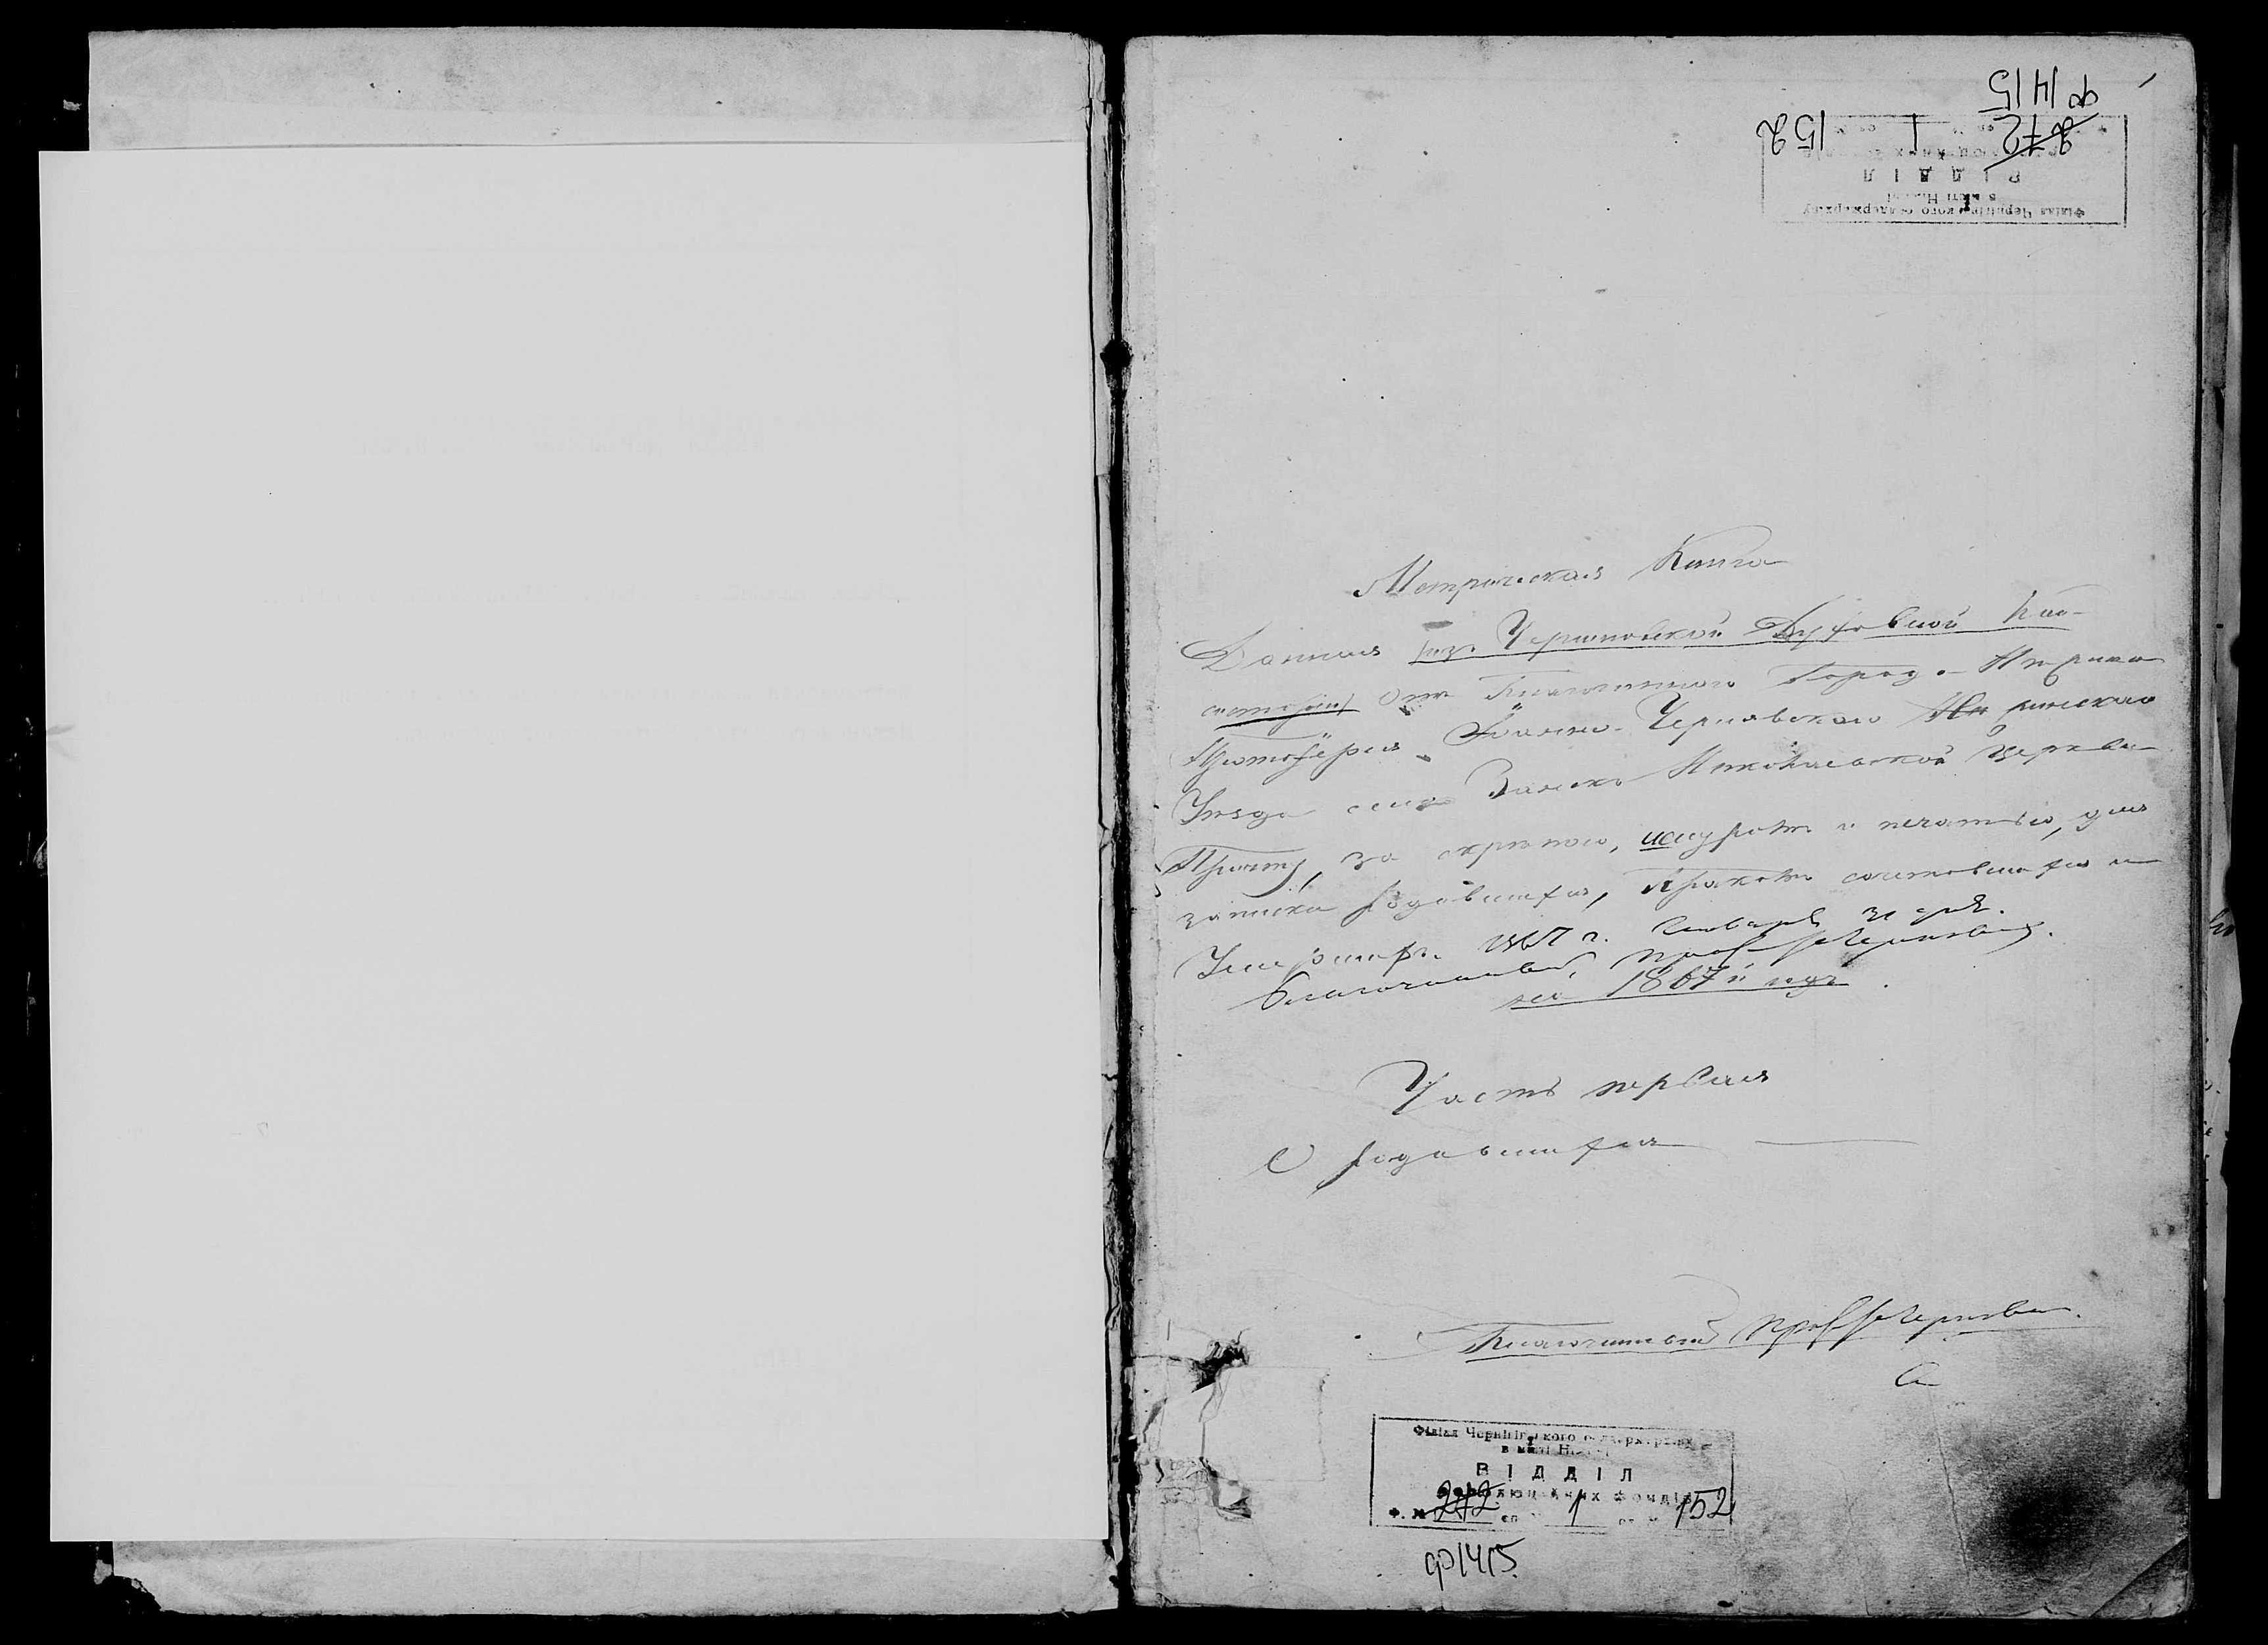 ф 1415
272 1 152
Філіал Чернігівського облдержархіву
в місті Ніжині
ВІДДІЛ
Метрическая Книга
Данная изъ Черниговской Духовной Кон-
систоріи отъ Благочиннаго Города Нѣжина
Протоіерея Іоанна Чернявского Нѣжинскаго
Уѣзда села Николаевской Церкви
Причту, за скрѣпою, шнуромъ и печатью, для
записки родившихся, бракомъ сочетавшихся и
Умершихъ 1867 г. Января 31 дня.
Благочинный
на 1867й годъ
Часть первая
О родившихся
Благочинный
Філіал Чернігівського облдержархіву
в місті Ніжині
ВІДДІЛ
фондів
Ф. № 272 оп 1 152
ф1415